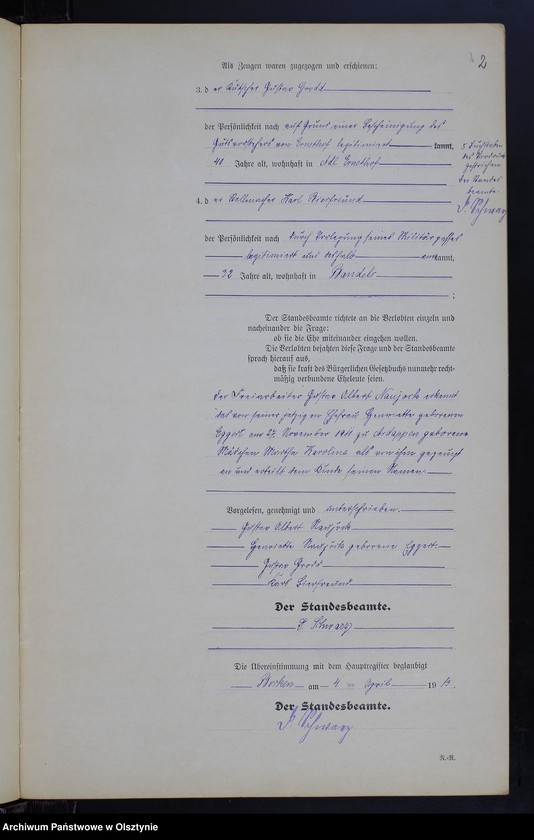 2
Als Zeugen waren zugezogen und erschienen:
3. d er Kutscher Gustav Grodd
der Persönlichkeit nach auf Grund einer Bescheinigung des
Gutsvorstehers von legitimiert kannt,
41 Jahre alt, wohnhaft in Adl.
4. d er Stellmacher Karl Bierfreund
der Persönlichkeit nach durch Vorlegung seines Militärpasses
legitimiert und deshalb kannt,
32 Jahre alt, wohnhaft in Wandeln
;
5 Buchstaben
des Vordrucks
gestrichen
Der Standes
beamte
F. Schwarz
Der Standesbeamte richtete an die Verlobten einzeln und
nacheinander die Frage:
ob sie die Ehe miteinander eingehen wollen.
Die Verlobten bejahten diese Frage und der Standesbeamte
sprach hierauf aus,
daß sie kraft des Bürgerlichen Gesetzbuchs nunmehr recht-
mäßig verbundene Eheleute seien.
Der Freiarbeiter Gustav Albert Naujock erkennt
das von seiner jetzigen Ehefrau Henriette geborenen
Eggert am 27. November 1911 zu geborene
Mädchen Martha Karoline als von ihm gezeugt
an und erteilt dem Kinde seinen Namen.
Vorgelesen, genehmigt und unterschrieben.
Gustav Albert Naujock
Henriette Naujock geborene Eggert
Gustav Grodd
Karl Bierfreund
Der Standesbeamte.
F. Schwarz
Die Übereinstimmung mit dem Hauptregister beglaubigt
Borken am 4 ten April 19 13.
Der Standesbeamte.
F. Schwarz
N.-R.
Archiwum Państwowe w Olsztynie